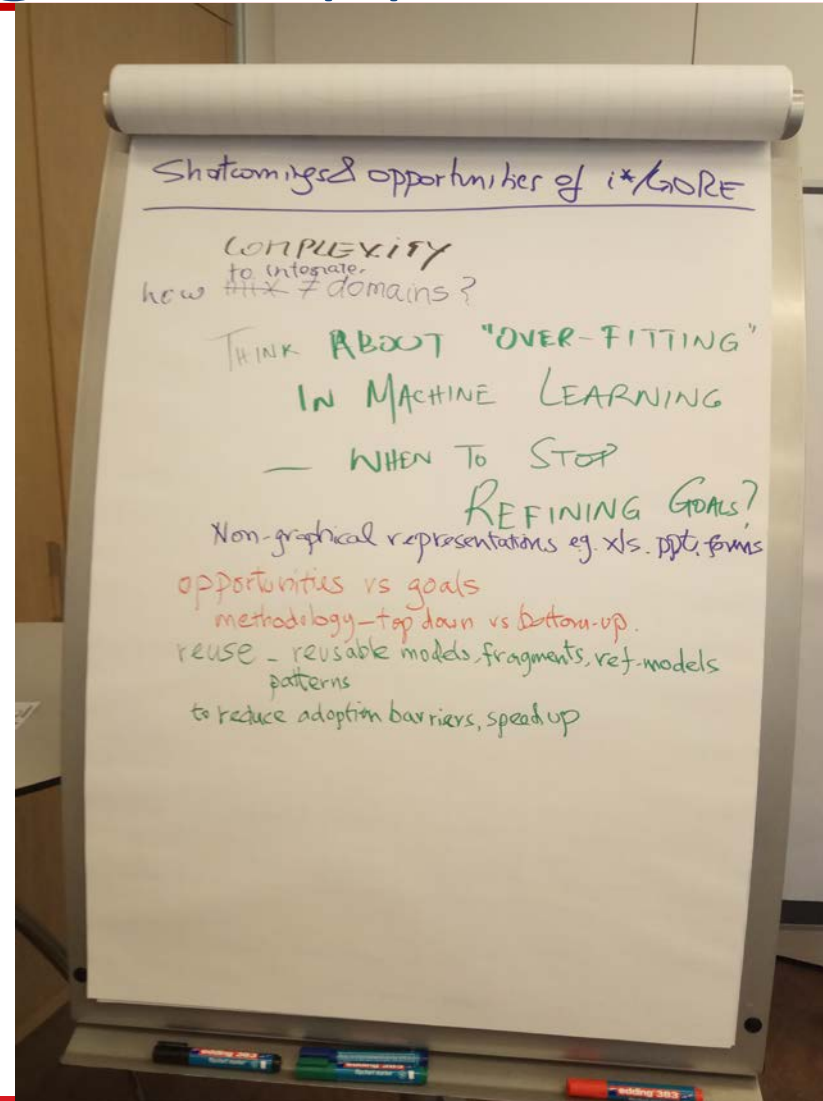 Shotcomings & opportunities of i*/GORE
COMPLEXITY
to integrate
how mix ≠ domains?
THINK ABOUT "OVER-FITTING"
IN MACHINE LEARNING
— WHEN TO STOP
REFINING GOALS?
Non-graphical representations eg. xls. ppt, forms
opportunities vs goals
methodology - top down vs bottom-up.
reuse - reusable models, fragments, ref-models
patterns
to reduce adoption barriers, speed up
edding 383
edding 383